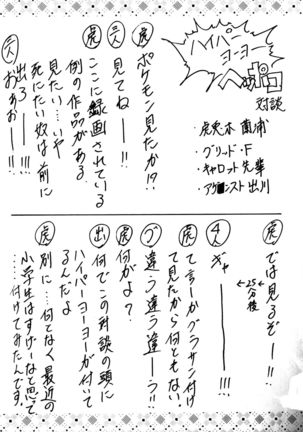 ハイパーヨーヨー
対談
・虎兎木 直浦
・グリード・F
・キャロット先輩
・アケコンスト出川
虎 ポケモン見たか!?
三人 見てねーー!!
虎 ここに録画されている
例の作品がある
見たい…いや
死にたい奴は前に
出ろーー!!
三人 おぉおーー!!!
虎 では見るぞーー!!
←25分後←
4人 ギャーーー!!!
虎 て言ーかグラサン付け
て見たから何ともない
グ 違う違う違ーう!!
虎 何がよ?
出 何でこの対談の頭に
ハイパーヨーヨーが付いて
るんだよ
虎 別に…何となく最近の
小学生はすげーなと思って
……付けてみたんです。